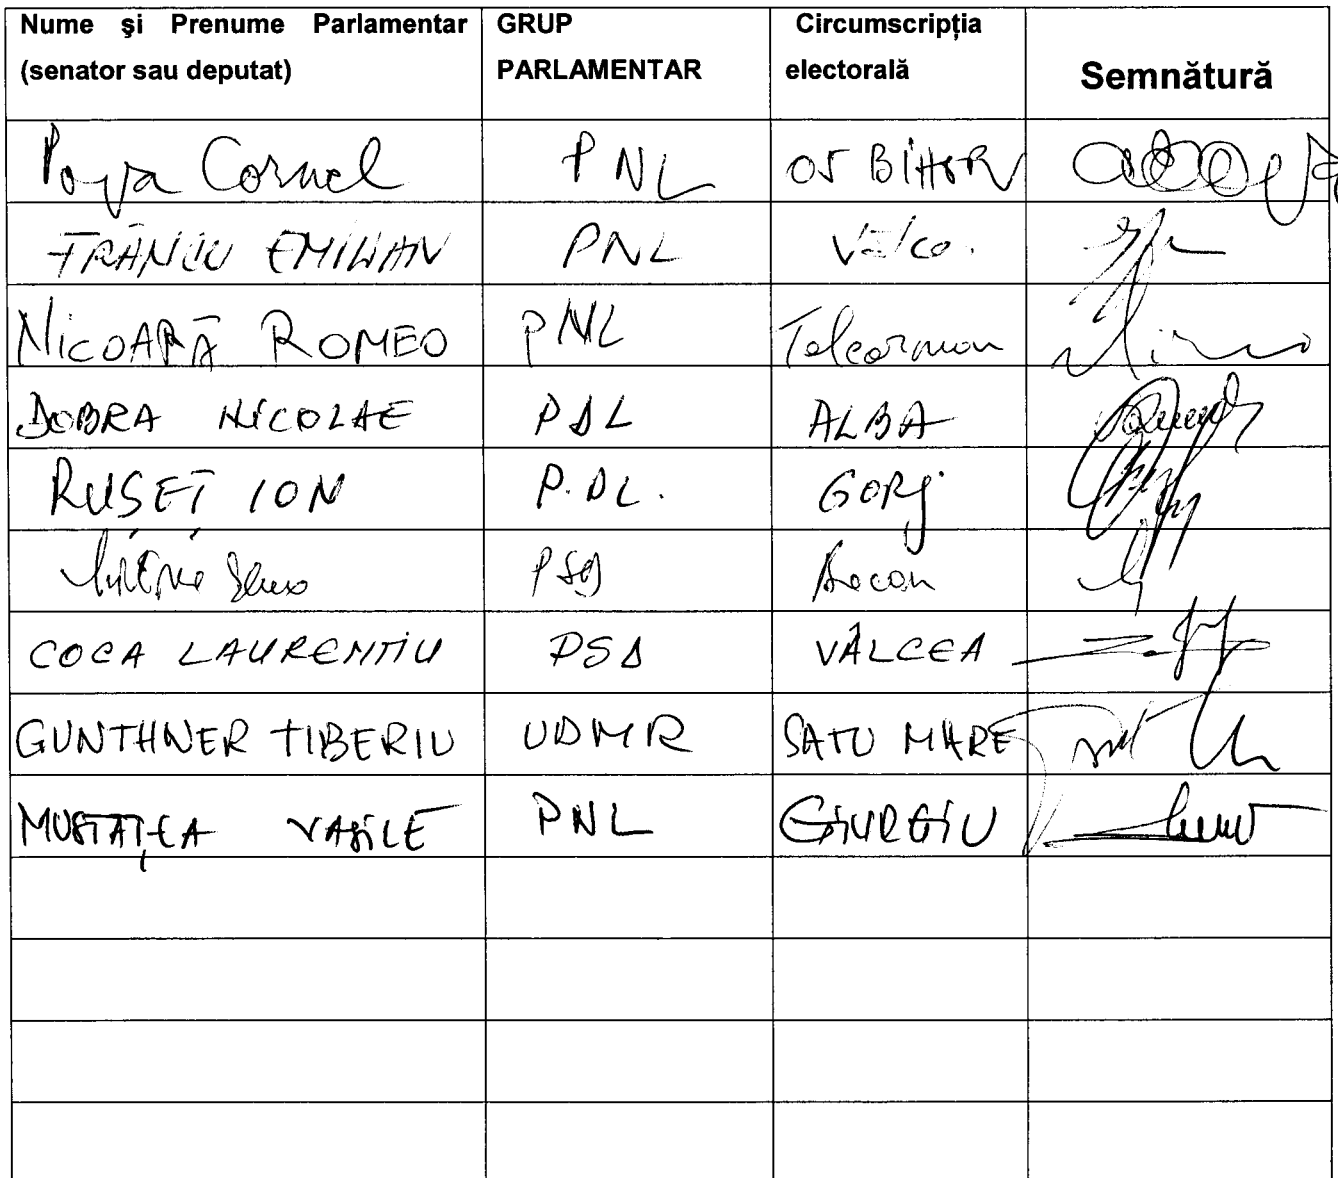 Nume şi Prenume Parlamentar (senator sau deputat) GRUP PARLAMENTAR Circumscripţia electorală Semnătură
Popa Cornel PNL 05 BiHOR
FRÂNCU EMILIAN PNL
NiCOARĂ ROMEO PNL Teleorman
DOBRA NiCOLAE PDL ALBA
RUSET ION P.DL. GORj
PSD
COCA LAURENȚiU PSD VÂLCEA
GUNTHNER TIBERIU UDMR SATU MARE
MUSTAȚEA VASiLE PNL GiURGiU